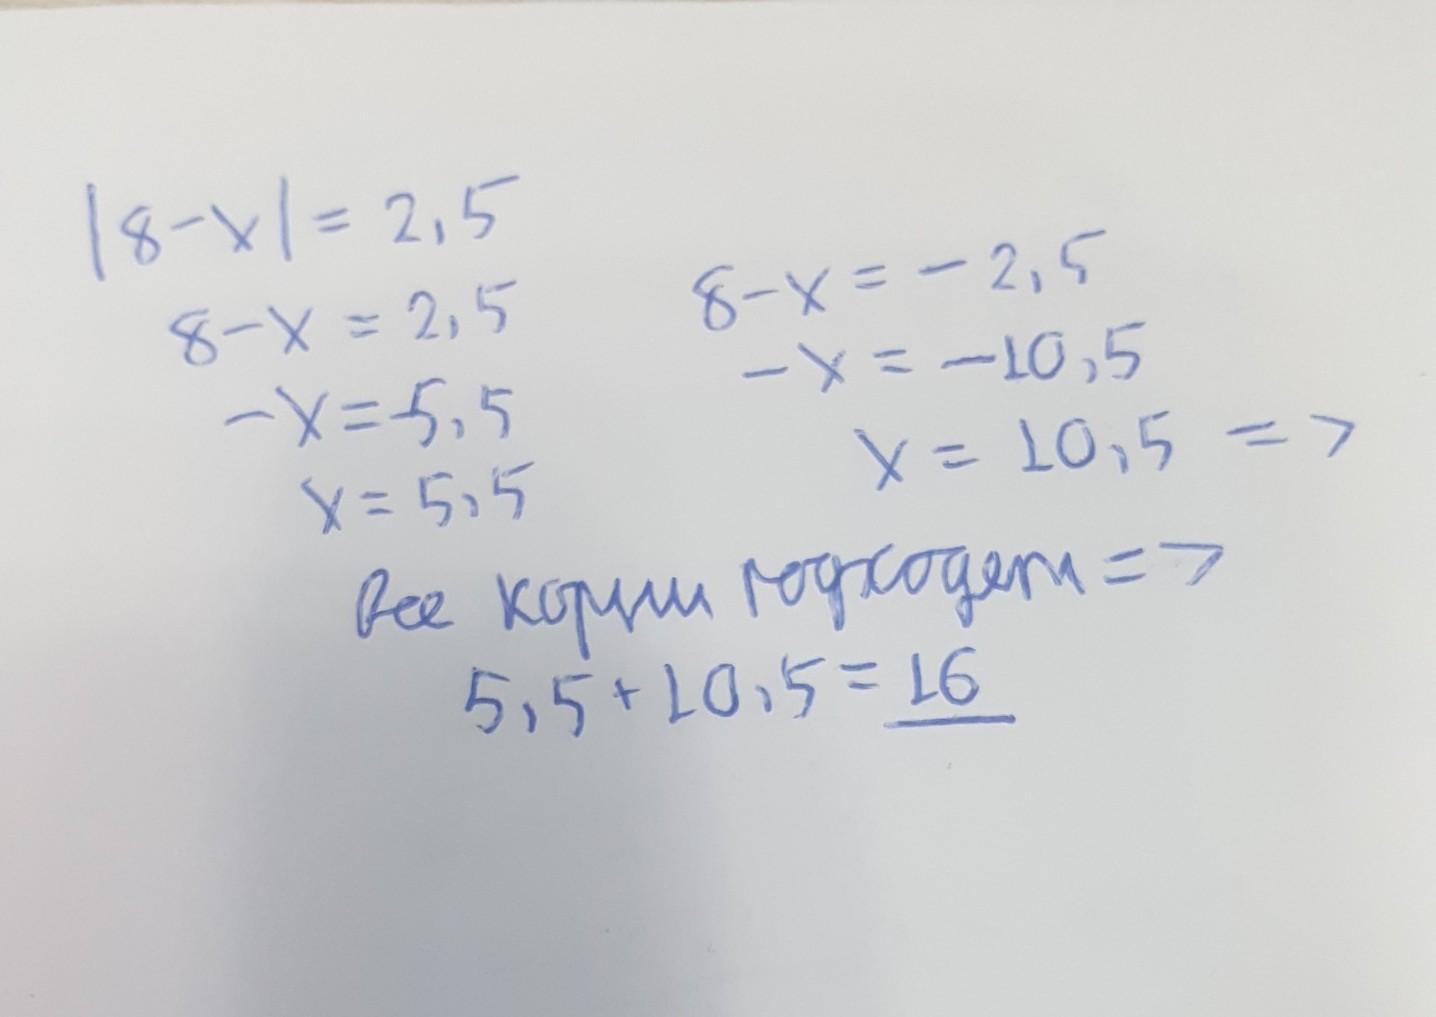 |8-x| = 2,5
8-x = 2,5
-x = -5,5
x = 5,5
8-x = -2,5
-x = -10,5
x = 10,5 =>
Все корни подходет =>
5,5 + 10,5 = 16